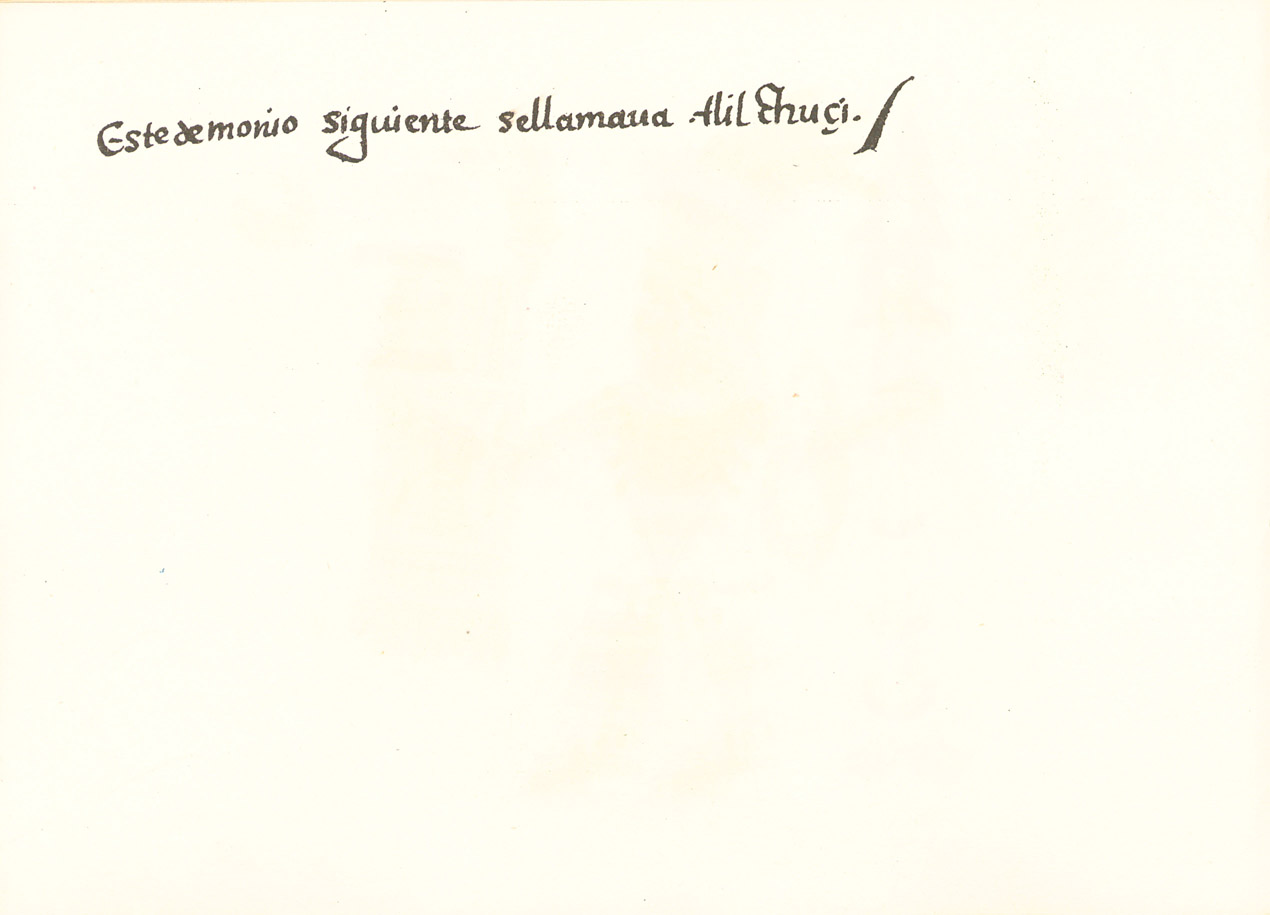 Este demonio siguiente sellamaua tlilthuçi./